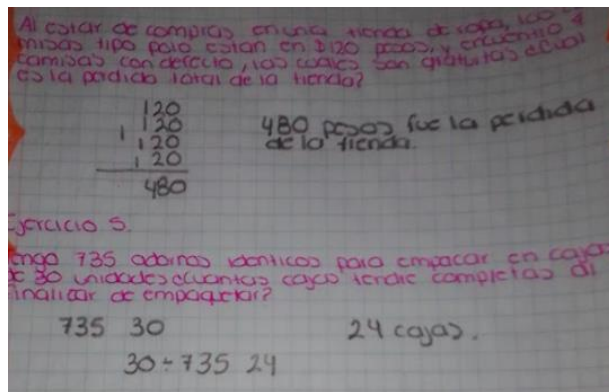 Al estar de compras en una tienda de ropa, las ca
misas tipo polo estan en $120 pesos, y encuentro 4
camisas con defecto, las cuales son gratuitas ¿Cual
es la perdida total de la tienda?
120
120
120
120
480
480 pesos fue la perdida
de la tienda.
Ejercicio 5.
Tengo 735 adornos identicos para empacar en cajas
de 30 unidades ¿cuantas cajas tendre completas al
finalizar de empaquetar?
735 30 24 cajas.
30 ÷ 735 24